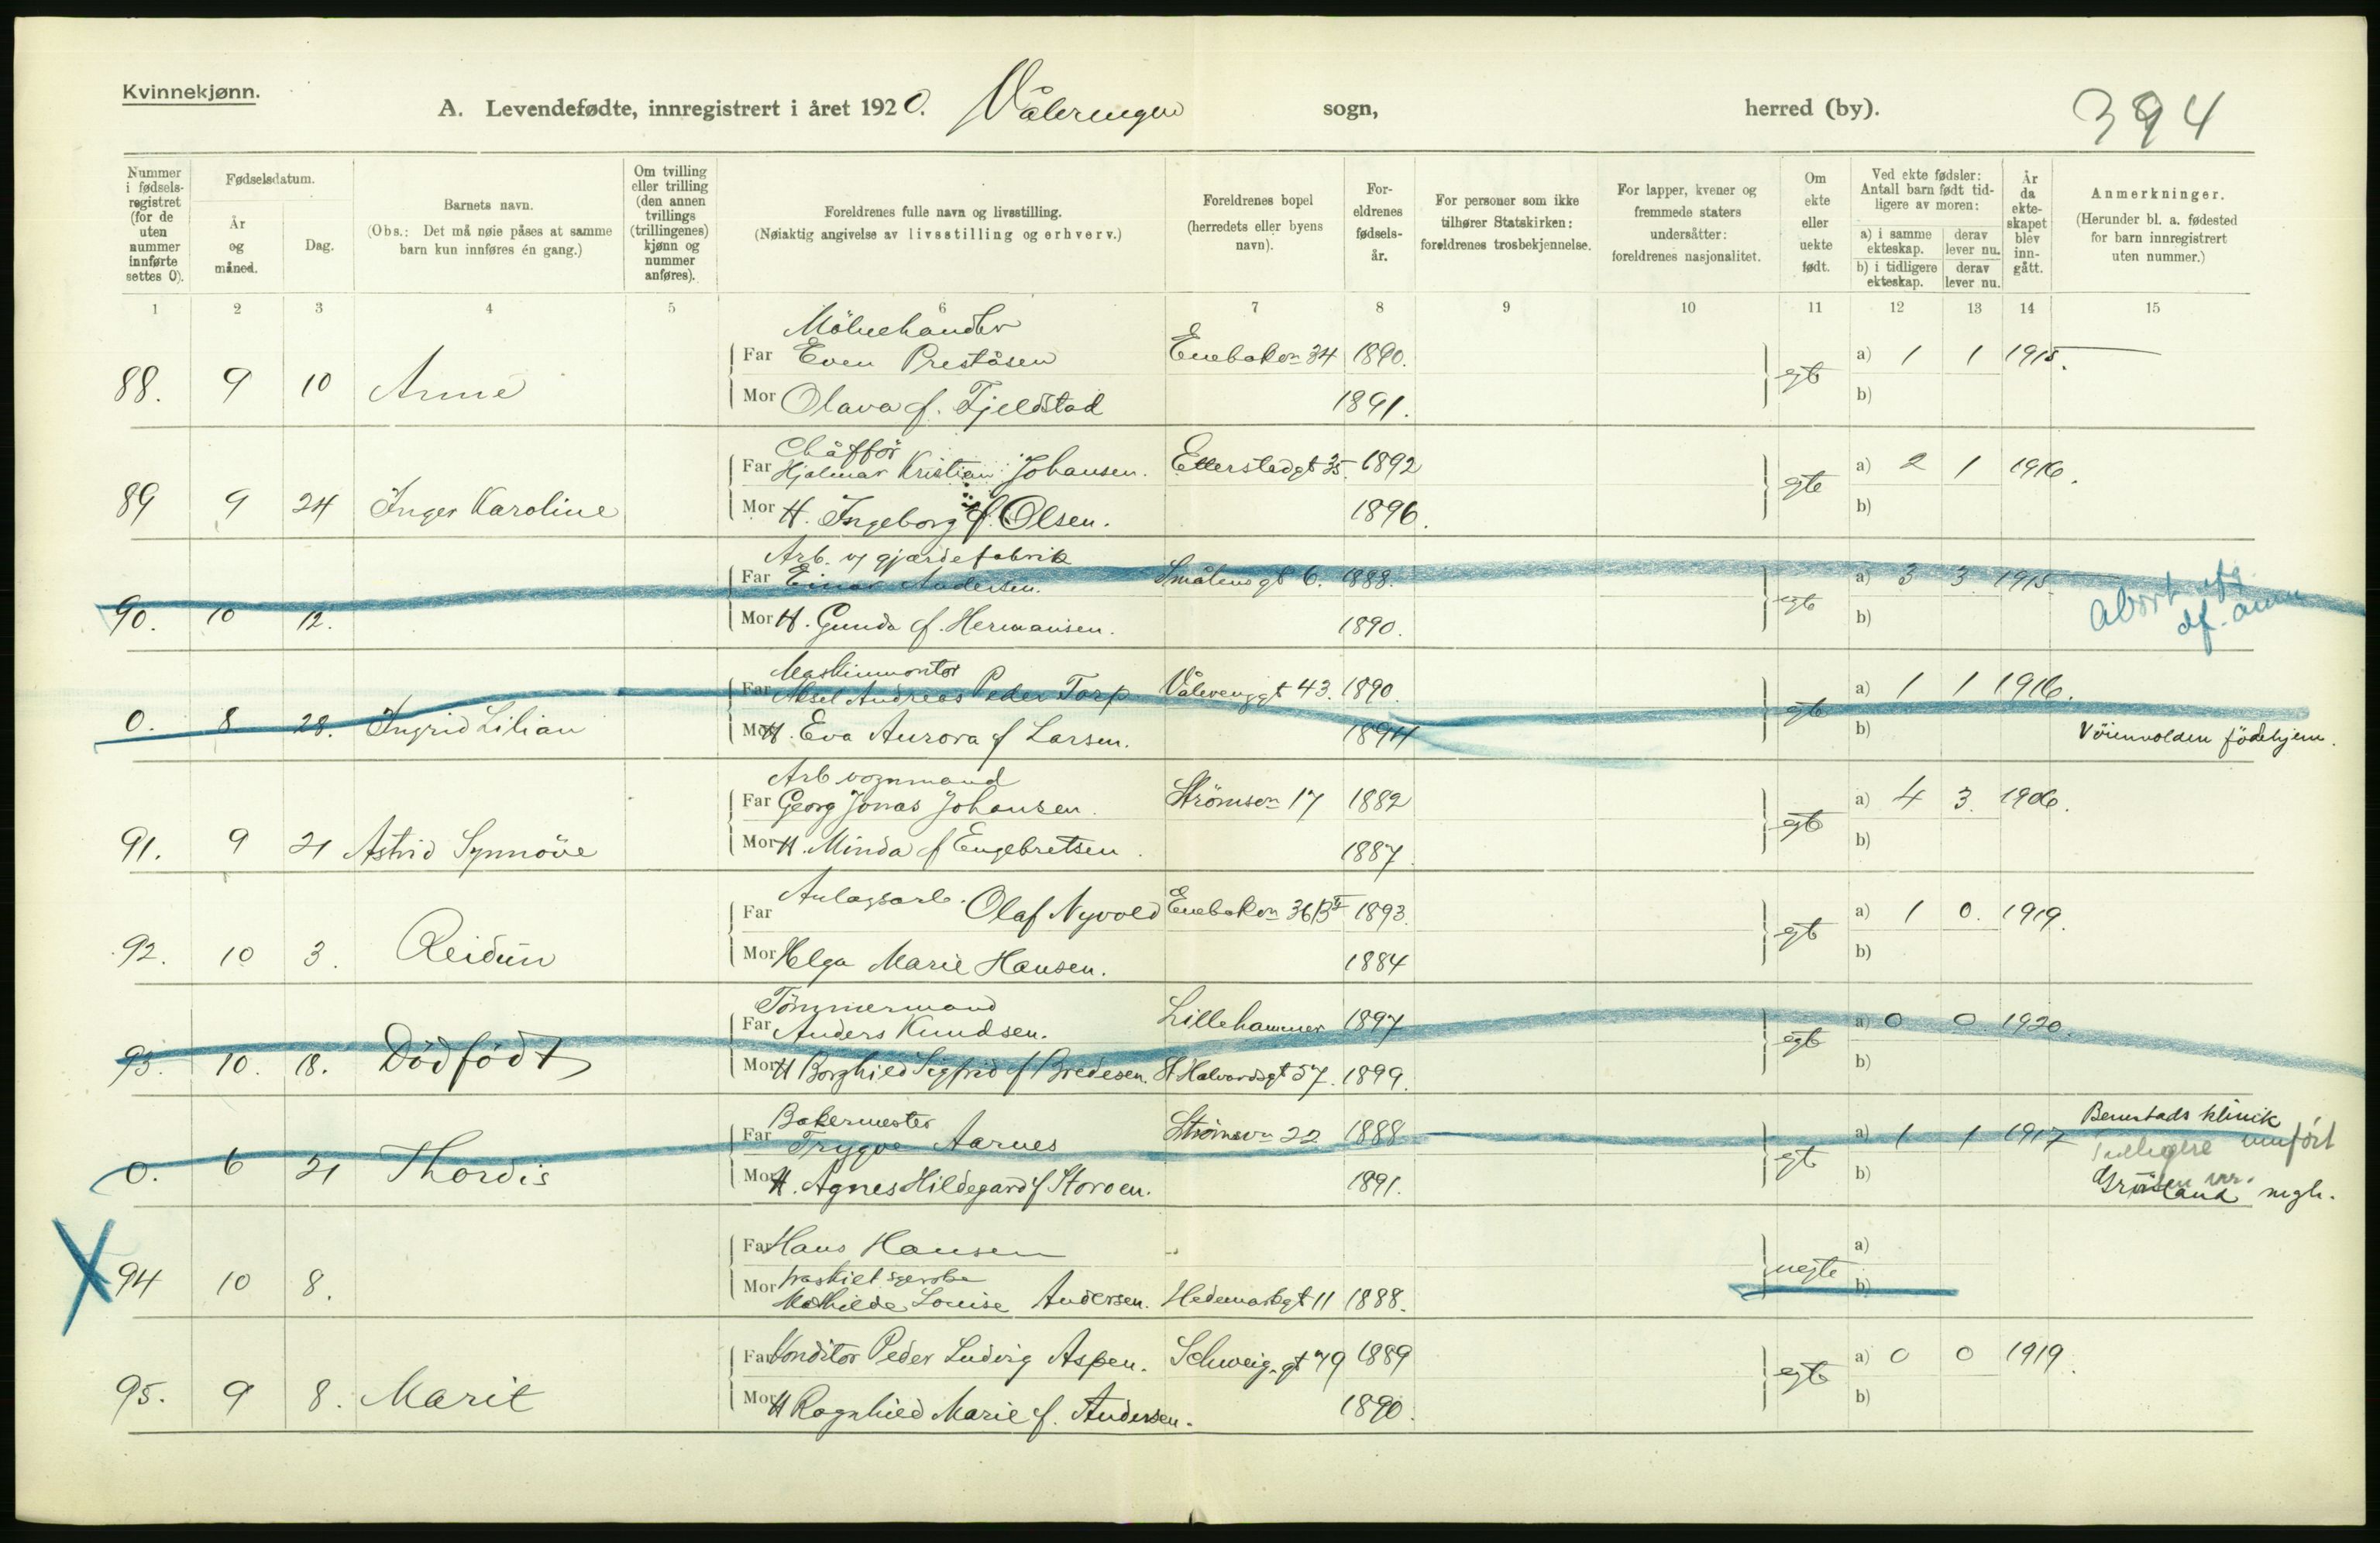 Kvinnekjønn.
A. Levendefødte, innregistrert i året 1920. Våleringen sogn, herred (by). 394
Nummer i fødselsregistret (for de uten nummer innførte settes 0).
Fødselsdatum.
År og måned.
Dag.
Barnets navn.
(Obs.: Det må nøie påses at samme barn kun innføres én gang.)
Om tvilling eller trilling (den annen tvillings (trillingenes) kjønn og nummer anføres).
Foreldrenes fulle navn og livsstilling.
(Nøiaktig angivelse av livsstilling og erhverv.)
Foreldrenes bopel (herredets eller byens navn).
Foreldrenes fødselsår.
For personer som ikke tilhører Statskirken: foreldrenes trosbekjennelse.
For lapper, kvener og fremmede staters undersåtter: foreldrenes nasjonalitet.
Om ekte eller uekte født.
Ved ekte fødsler: Antall barn født tidligere av moren:
a) i samme ekteskap. derav lever nu.
b) i tidligere ekteskap. derav lever nu.
År da ekteskapet blev inngått.
Anmerkninger.
(Herunder bl. a. fødested for barn innregistrert uten nummer.)
1 2 3 4 5 6 7 8 9 10 11 12 13 14 15
Far Even Preståsen Enebakvn 34 1890. a) 1 1 1915.
88. 9 10 egte
Mor Olava f. Fjeldstad 1891. b)
Chåffør
Far Hjalmar Kristian Johansen. Etterstadgt 35. 1892 a) 2 1 1916.
89 9 24 Inger Karoline egte
Mor H. Ingeborg f. Olsen. 1896. b)
Arb. v/ gjærdefabrik
Far Einar Andersen. Smålensgt 6. 1888. a) 3 3 1915
90. 10 12. egte Abort
Mor H. Gunda f. Hermansen. 1890. b)
Maskinmontør
Far Aksel Andreas Peder Torp Vålerenggt 43. 1890. a) 1 1 1916.
0. 8 28. Ingrid Lilian egte
Mor H. Eva Aurora f Larsen. 1894 b) Vöienvolden födehjem.
Arb. vognmand
Far Georg Jonas Johansen. Strømsvn 17 1882 a) 4 3. 1906.
91. 9 21 Astrid Synnöve egte
Mor H. Minda f Engebretsen. 1887. b)
Anlagsarb.
Far Olaf Nyvold Enebakvn 36B 1893. a) 1 0. 1919.
92. 10 3. Reidun egte
Mor Helga Marie Hansen. 1884 b)
Tömmermand
Far Anders Knudsen. Lillehammer 1897 a) 0 0 1920.
93. 10. 18. Dödfödt egte
Mor H Borghild Sigfrid f Bredesen. St Halvardsgt 57. 1899. b)
Bakermester
Far Trygve Aarnes Strömsvn 22 1888 a) 1 1 1917 Bernstads klinik
Tidligere innfört
0. 6 21 Thordis egte
Mor H. Agnes Hildegard f Storoen. 1891. b) Grönland mgh.
Far Hans Hansen a)
X 94 10 8. uegte
Mor fraskilt
Mathilde Louise Andersen. Hedemarksgt 11 1888. b)
Far Konditor Peder Ludvig Aspen. Schweig.gt 79 1889 a) 0 0 1919.
95. 9 8. Marit egte
Mor H Ragnhild Marie f. Andersen. 1890. b)